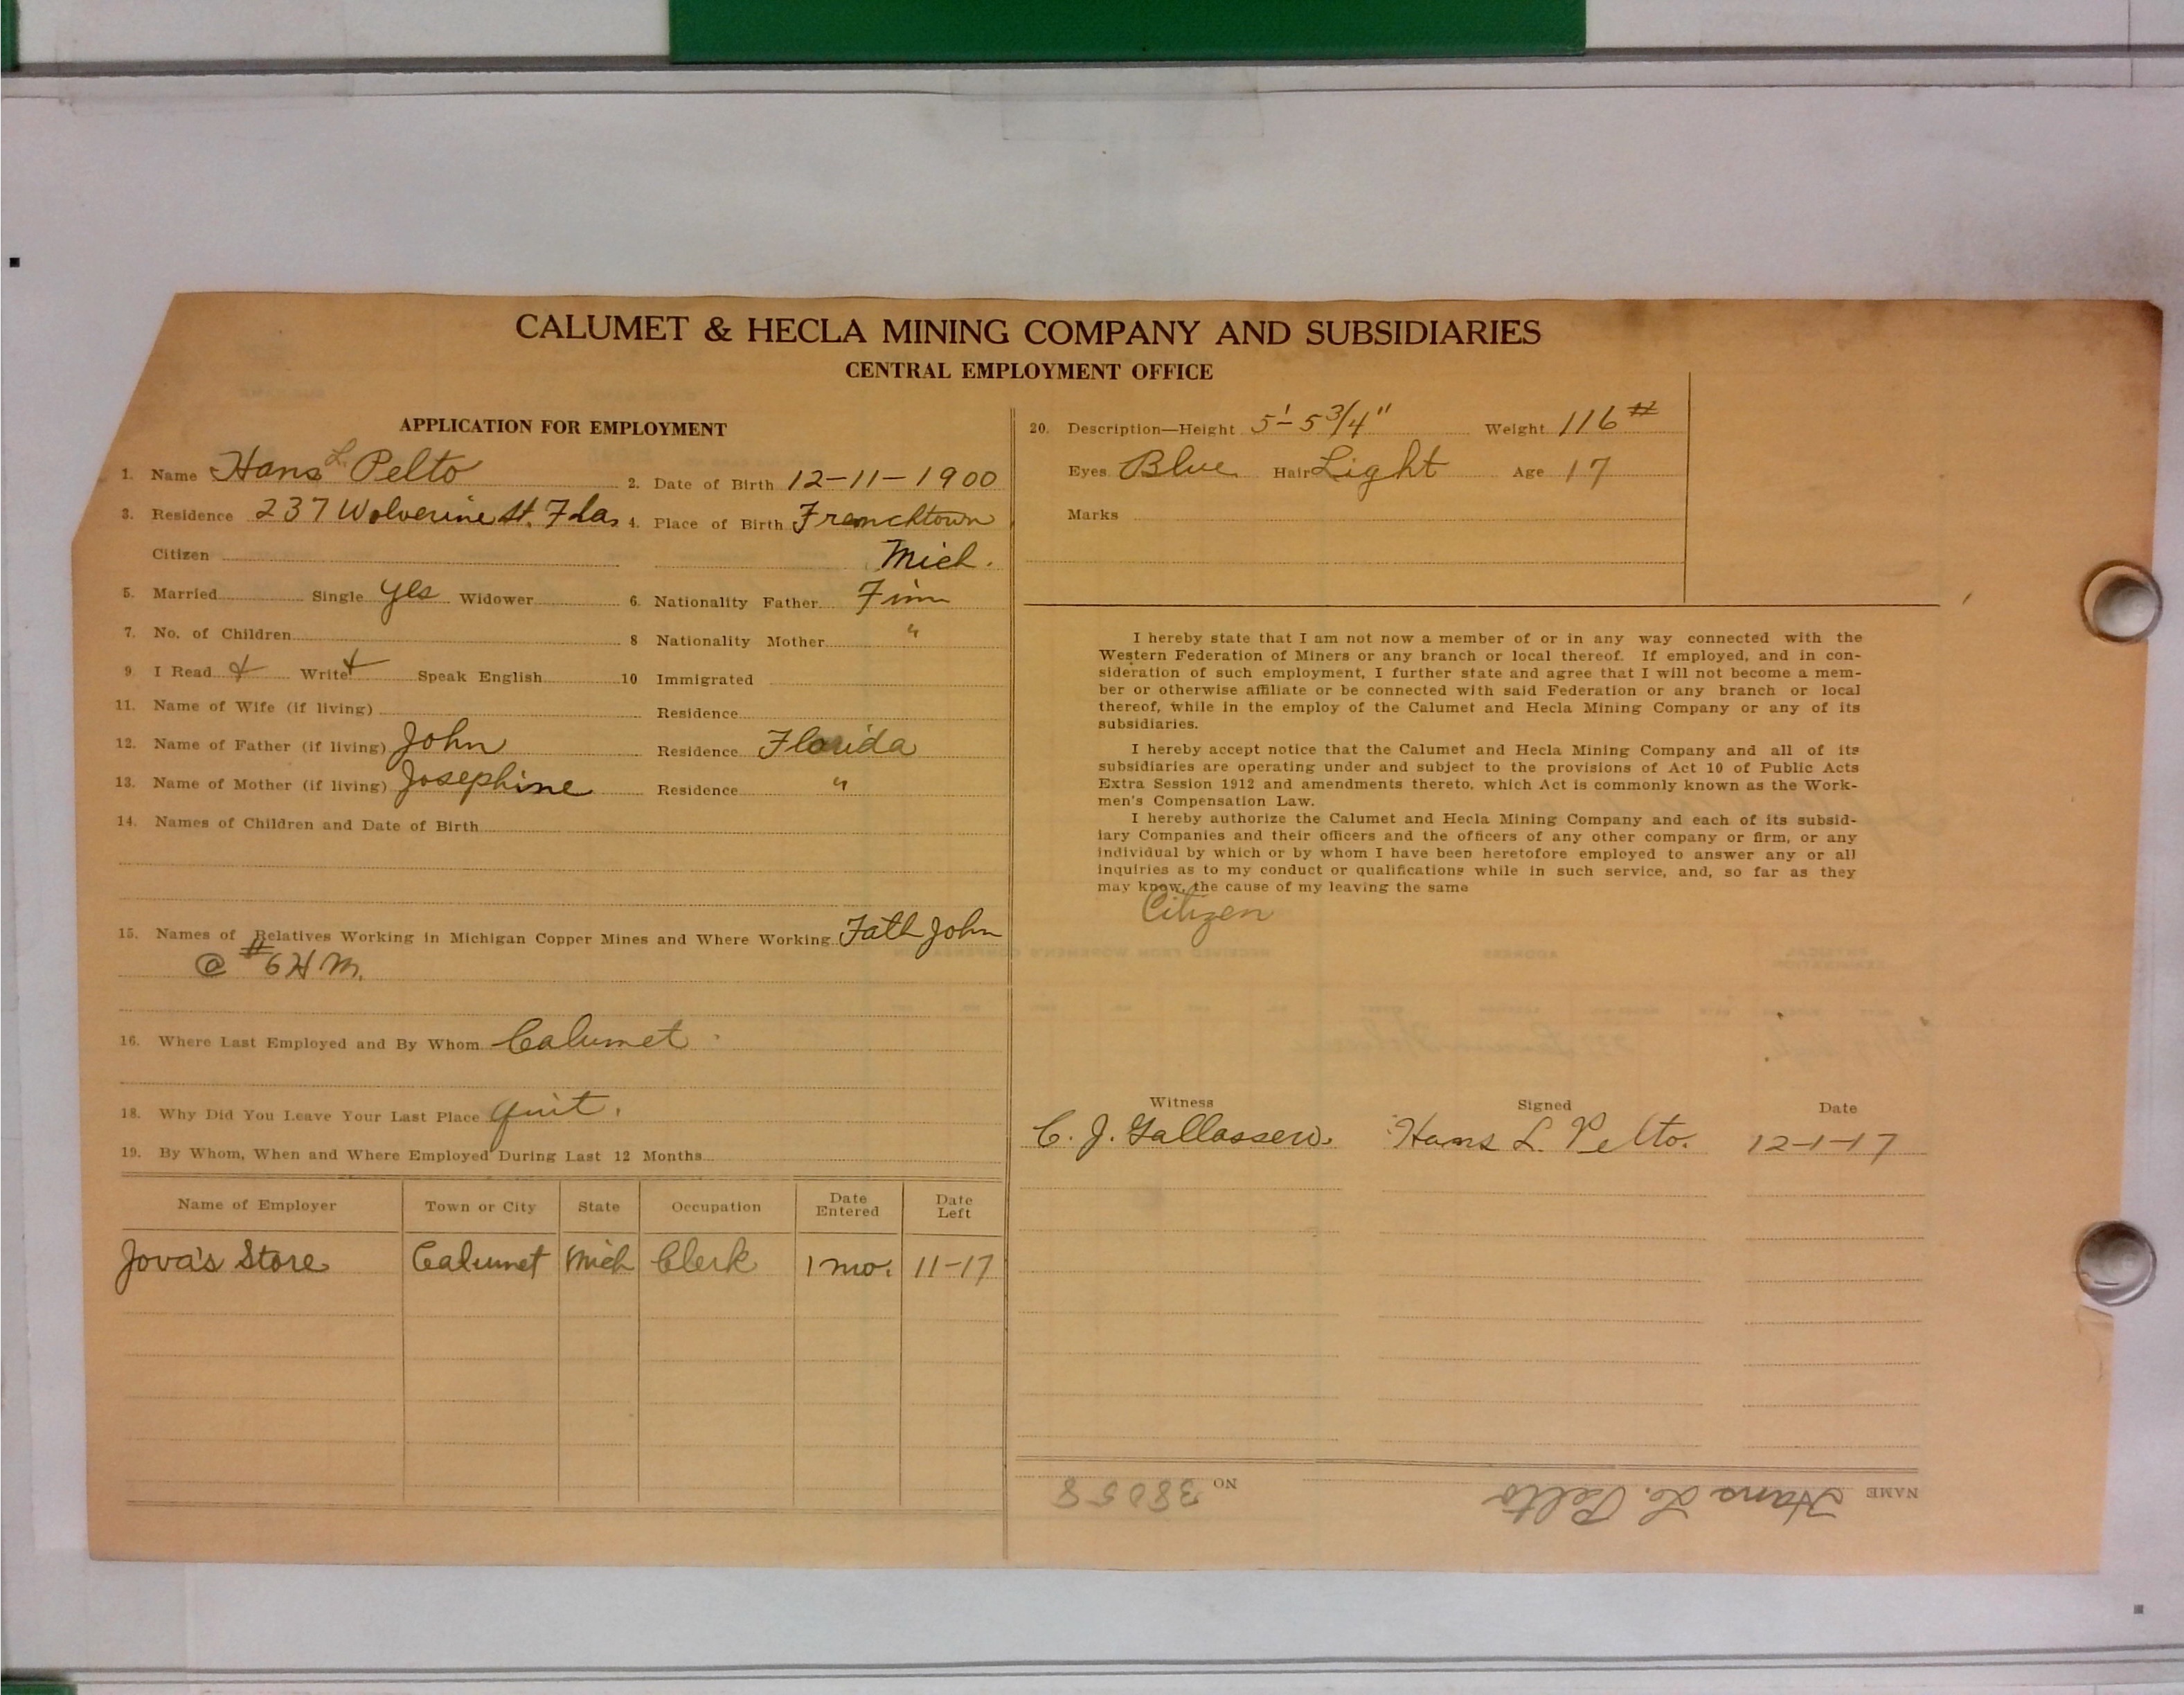 CALUMET & HECLA MINING COMPANY AND SUBSIDIARIES
CENTRAL EMPLOYMENT OFFICE
APPLICATION FOR EMPLOYMENT
1. Name Hans L. Pelto 2. Date of Birth 12-11-1900
3. Residence 237 Wolverine St. Fla. 4. Place of Birth Frenchtown
Citizen Mich.
5. Married Single yes Widower 6. Nationality Father Finn
7. No. of Children 8 Nationality Mother "
9. I Read Write Speak English 10 Immigrated
11. Name of Wife (if living) Residence
12. Name of Father (if living) John Residence Florida
13. Name of Mother (if living) Josephine Residence "
14. Names of Children and Date of Birth
15. Names of Relatives Working in Michigan Copper Mines and Where Working Fath John
@ #6 H M.
16. Where Last Employed and By Whom Calumet
18. Why Did You Leave Your Last Place quit.
19. By Whom, When and Where Employed During Last 12 Months
Name of Employer Town or City State Occupation Date Entered Date Left
Jova's Store Calumet Mich Clerk 1 mo. 11-17
20. Description—Height 5'-5 3/4" Weight 116 #
Eyes Blue Hair Light Age 17
Marks
I hereby state that I am not now a member of or in any way connected with the
Western Federation of Miners or any branch or local thereof. If employed, and in con-
sideration of such employment, I further state and agree that I will not become a mem-
ber or otherwise affiliate or be connected with said Federation or any branch or local
thereof, while in the employ of the Calumet and Hecla Mining Company or any of its
subsidiaries.
I hereby accept notice that the Calumet and Hecla Mining Company and all of its
subsidiaries are operating under and subject to the provisions of Act 10 of Public Acts
Extra Session 1912 and amendments thereto, which Act is commonly known as the Work-
men's Compensation Law.
I hereby authorize the Calumet and Hecla Mining Company and each of its subsid-
iary Companies and their officers and the officers of any other company or firm, or any
individual by which or by whom I have been heretofore employed to answer any or all
inquiries as to my conduct or qualifications while in such service, and, so far as they
may know, the cause of my leaving the same
Citizen
Witness Signed Date
C. J. Hans L. Pelto. 12-1-17
NAME Hans L. Pelto NO 38058